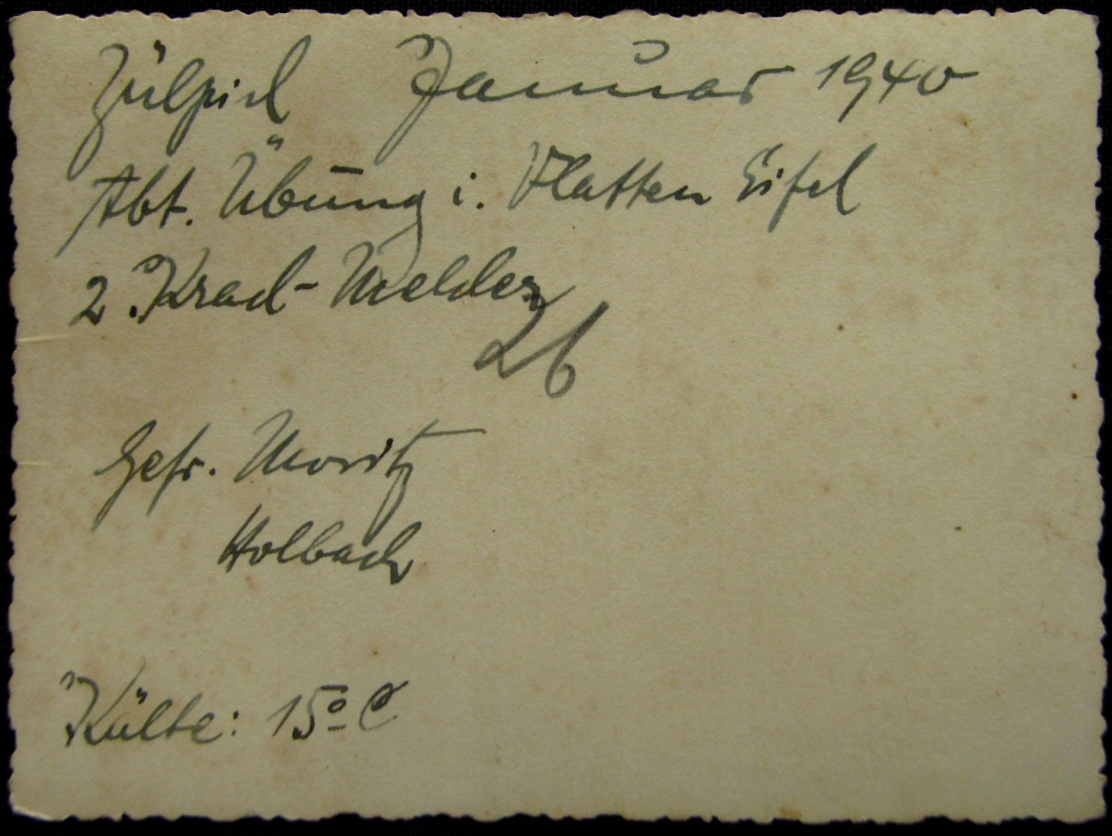 Zülpich Januar 1940
Abt. Übung i. Vlatten Eifel
2. Krad-Melder
26
Gefr. Moritz
Holbach
Kälte: 15° C